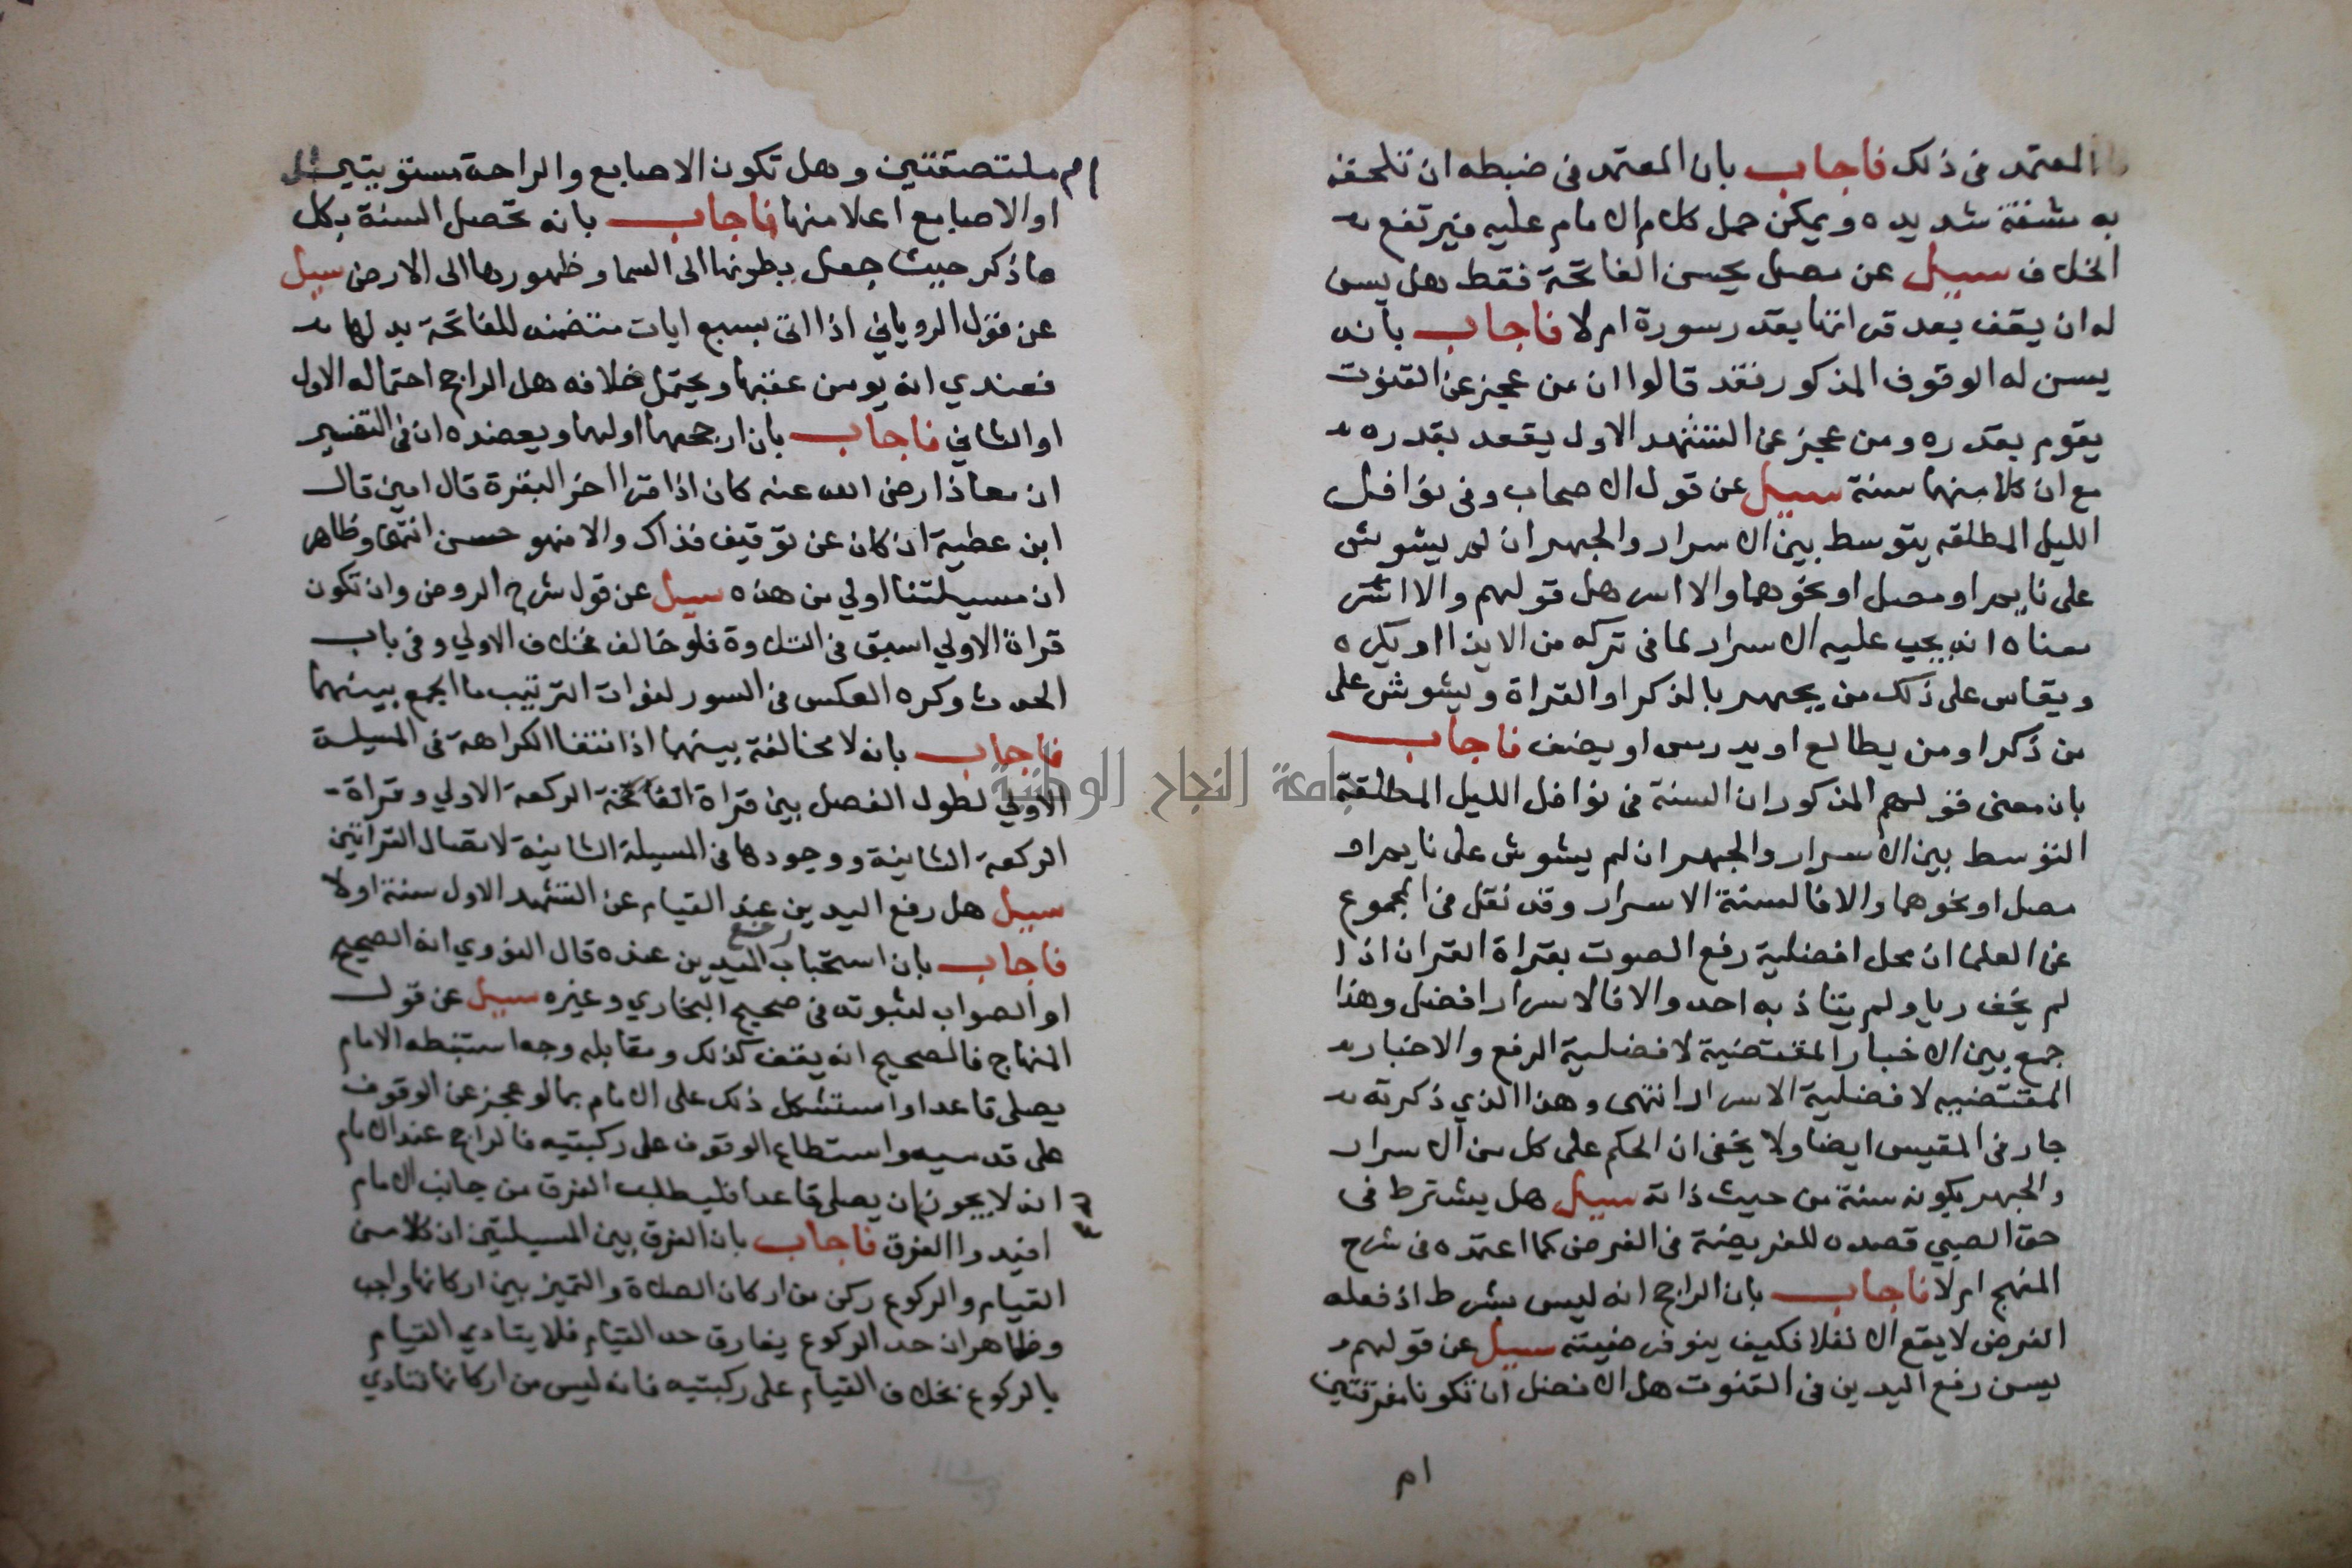 المعتمد فى ذلك فاجاب بان المعتمد فى ضبطه ان تلحقه
به مشقة شديده ويمكن حمل كلام الامام عليه فيرتفع
الخلاف سييل عن مصل يحسن الفاتحة فقط هل يسن
له ان يقف بعد قراتها بقدر سورة ام لا فاجاب بانه
يسن له الوقوف المذكور فقد قالوا ان من عجز عن القنوت
يقوم بقدره ومن عجز عن التشهد الاول يقعد بقدره
مع ان كلا منهما سنة سييل عن قول الاصحاب وفى نوافل
الليل المطلقه يتوسط بين الاسرار والجهر ان لم يشوش
على نايم او مصل او نحوهما والا اسر هل قولهم والا اسر
معناه انه يجب عليه الاسرار لما فى تركه من الايذا او يكره
ويقاس على ذلك من يجهر بالذكر او القراة ويشوش على
من ذكر او من يطالع او يدرس او يصنف فاجاب
بان معنى قولهم المذكور ان السنة فى نوافل الليل المطلقة
التوسط بين الاسرار والجهر ان لم يشوش على نايم او
مصل او نحوهما والا فالسنة الاسرار وقد نقل فى المجموع
عن العلما ان محل افضلية رفع الصوت بقراة القران اذا
لم يخف ريا ولم يتاذ به احد والا فالاسرار افضل وهذا
جمع بين الاخبار المقتضية لافضلية الرفع والاخبار
المقتضيه لافضلية الاسرار انتهى وهذا الذي ذكرته
جار فى المقيس ايضا ولا يخفى ان الحكم على كل من الاسرار
والجهر بكونه سنة من حيث ذاته سييل هل يشترط فى
حق الصبي قصده للفريضة فى الفرض كما اعتمده فى شرح
المنهج ام لا فاجاب بان الراجح انه ليس بشرط اذ فعله
الفرض لا يقع الا نفلا فكيف ينوي فرضيته سييل عن قولهم
يسن رفع اليدين فى القنوت هل الافضل ان تكونا مفرقتين
ام
ام ملتصقتين وهل تكون الاصابع والراحة مستويتين
او الاصابع اعلا منها فاجاب بانه تحصل السنة بكل
ما ذكر حيث جعل بطونها الى السما وظهورها الى الارض سييل
عن قول الروياني اذا اتى بسبع ايات متضمنه للفاتحة بدلها
فعندي انه يومن عقبها ويحتمل خلافه هل الراجح احتماله الاول
او الثاني فاجاب بان ارجحهما اولهما ويعضده ان فى التفسير
ان معاذا رضى الله عنه كان اذا قرا اخر البقرة قال امين قال
ابن عطية ان كان عن توقيف فذاك والا فهو حسن انتهى وظاهر
ان مسيلتنا اولي من هذه سييل عن قول شرح الروض وان تكون
قراة الاولي اسبق فى التلاوة فلو خالف فخلاف الاولي وفى باب
الحدث وكره العكس فى السور لفوات الترتيب ما الجمع بينهما
فاجاب بانه لا مخالفة بينهما اذ انتفا الكراهة فى المسيلة
الاولي لطول الفصل بين قراة الفاتحة الركعة الاولي وقراة
الركعة الثانية ووجودها فى المسيلة الثانية لاتصال القراتين
سييل هل رفع اليدين عند القيام عن التشهد الاول سنة اولا
فاجاب بان استحباب رفع اليدين عنده قال النووي انه الصحيح
او الصواب لثبوته فى صحيح البخاري وغيره سييل عن قول
المنهاج فالصحيح انه يقف كذلك ومقابله وجه استنبطه الامام
يصلى قاعدا واستشكل ذلك على الامام بما لو عجز عن الوقوف
على قدميه واستطاع الوقوف على ركبتيه فالراجح عند الامام
انه لا يجوز ان يصلى قاعدا فليطلب الفرق من جانب الامام
افيدوا الفرق فاجاب بان الفرق بين المسيلتين ان كلا من
القيام والركوع ركن من اركان الصلاة والتميز بين اركانها واجب
وظاهر ان حد الركوع يفارق حد القيام فلا يتادي القيام
بالركوع بخلاف القيام على ركبتيه فانه ليس من اركانها فتادي
جامعة النجاح الوطنية